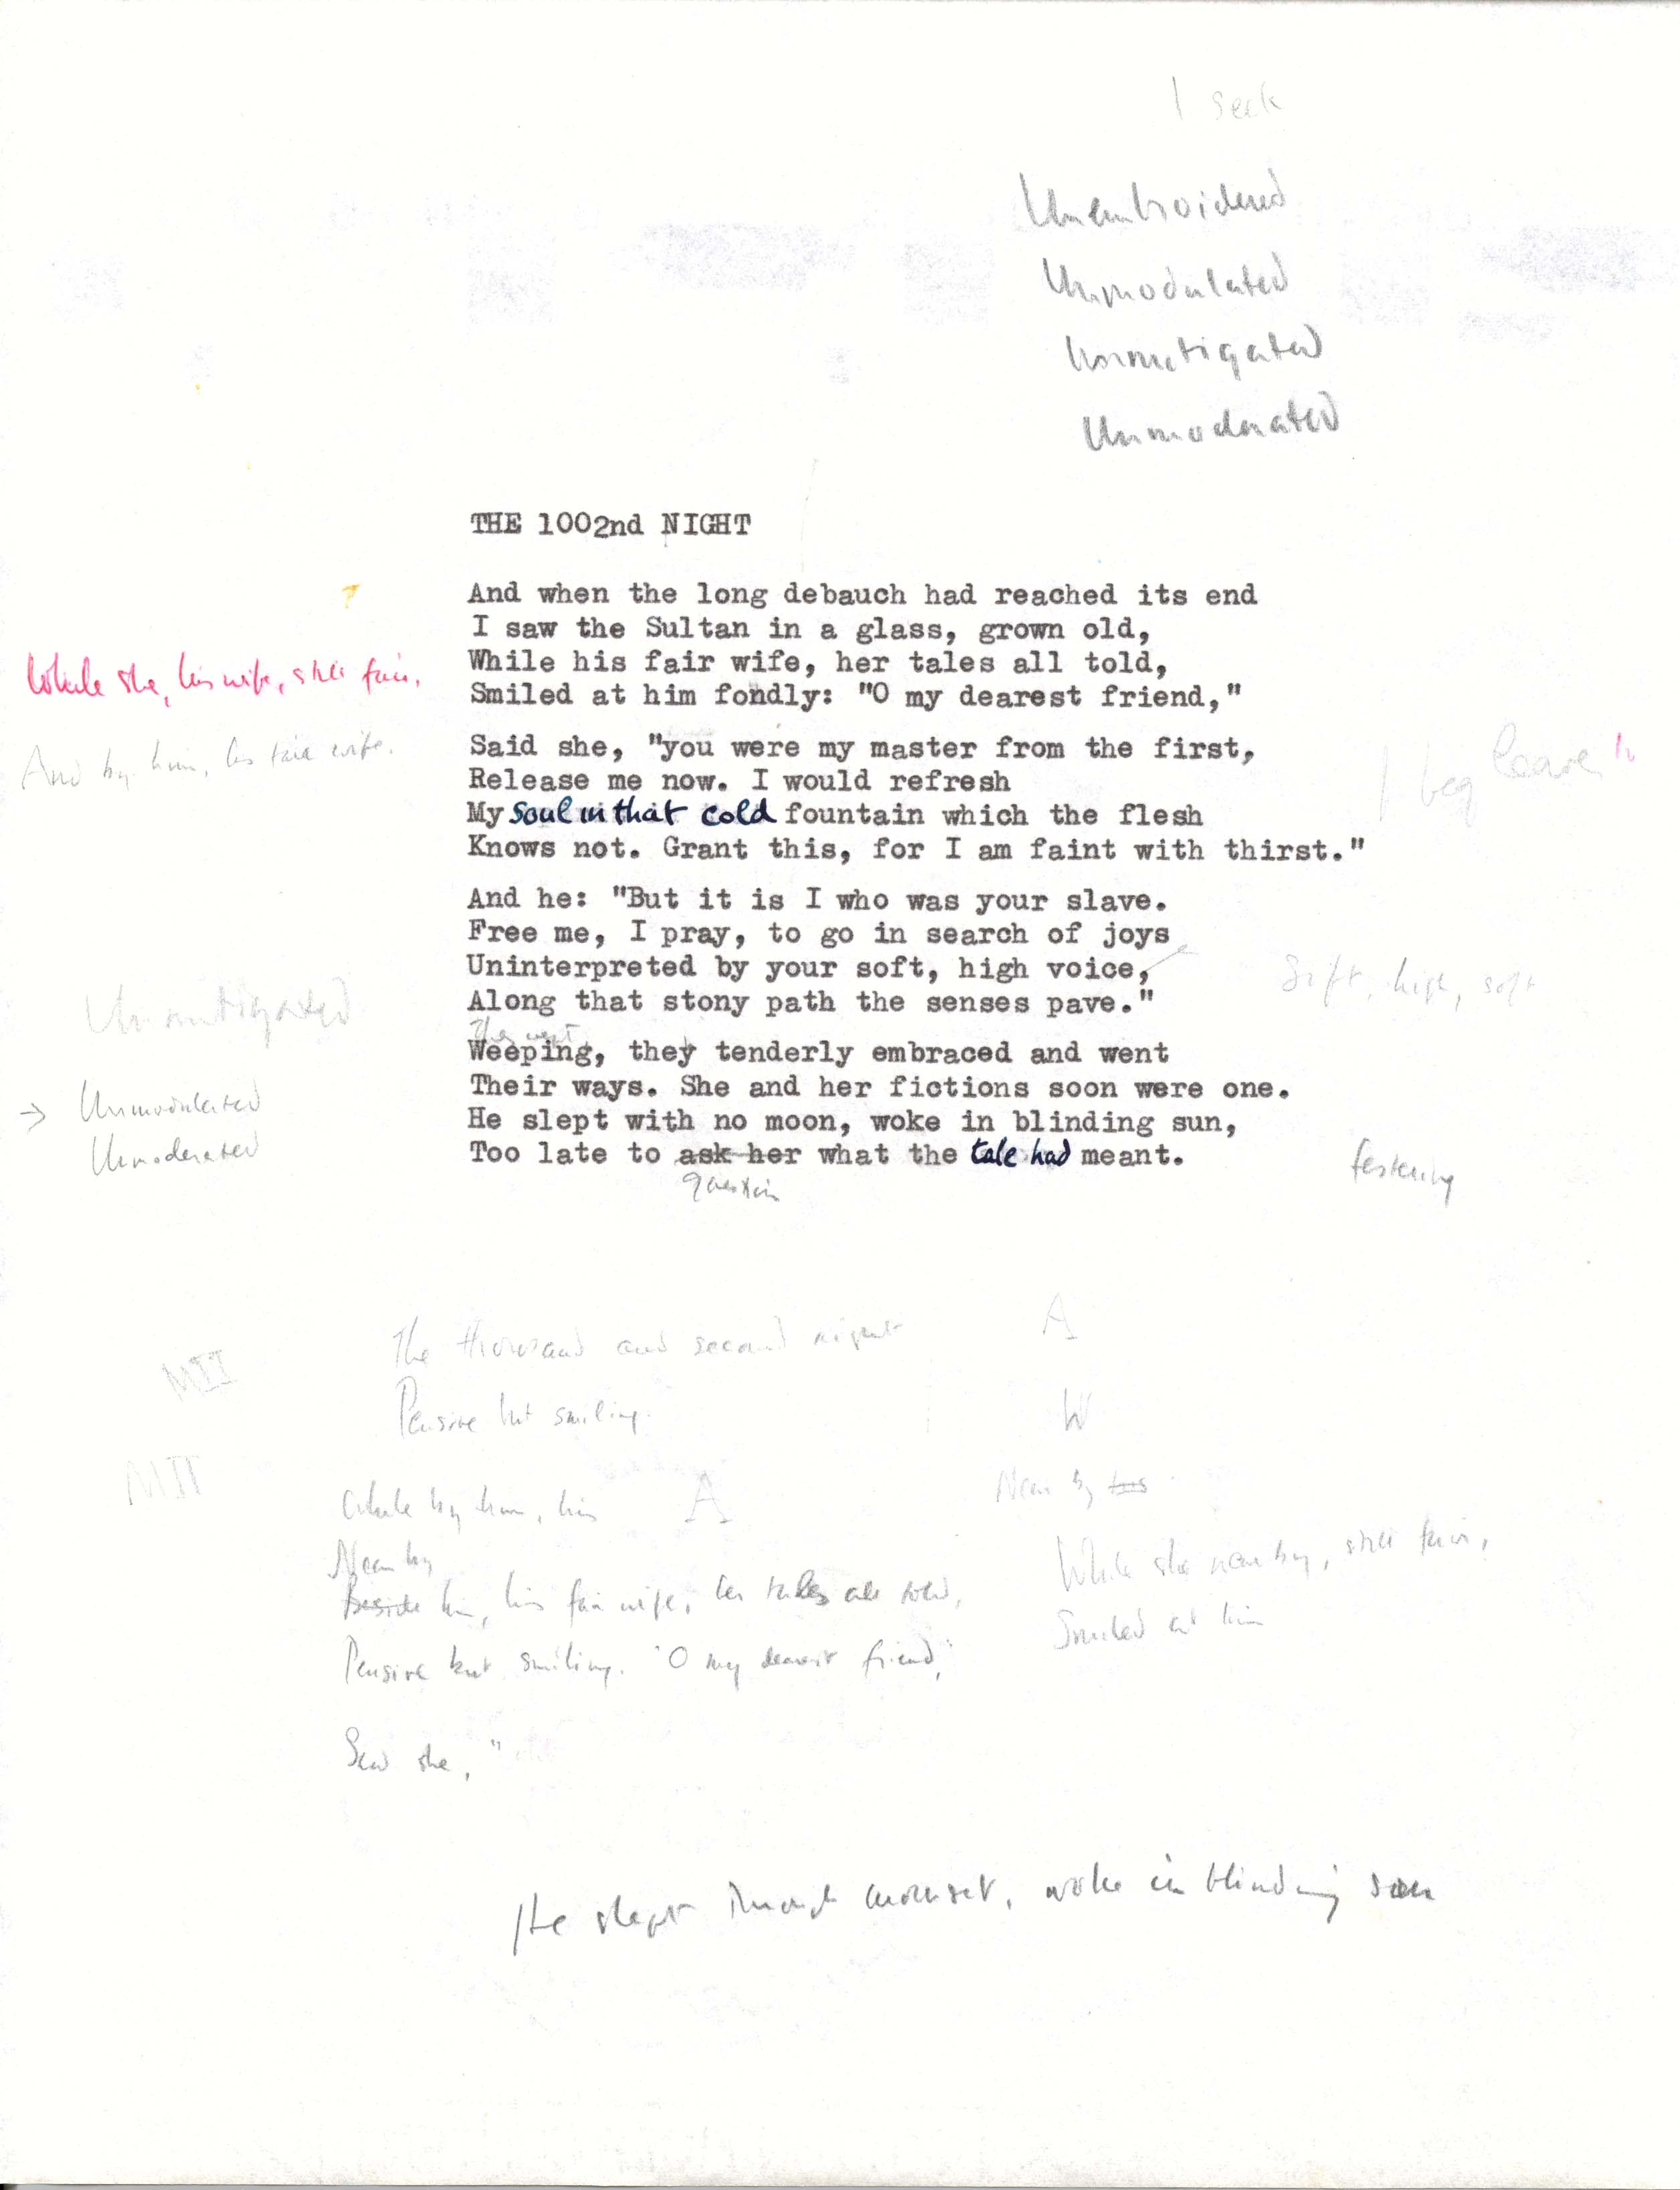 I seek
Unembroidered
Unmodulated
Unmitigated
Unmoderated
THE 1002nd NIGHT
And when the long debauch had reached its end
I saw the Sultan in a glass, grown old,
While his fair wife, her tales all told,
Smiled at him fondly: "O my dearest friend,"
While she, his wife, still fair,
And by him, his fair wife.
Said she, "you were my master from the first,
Release me now. I would refresh
My soul in that cold fountain which the flesh
Knows not. Grant this, for I am faint with thirst."
I beg leave to
And he: "But it is I who was your slave.
Free me, I pray, to go in search of joys
Uninterpreted by your soft, high voice,
Along that stony path the senses pave."
Soft, high, soft
Unmitigated
They wept
Weeping, they tenderly embraced and went
Their ways. She and her fictions soon were one.
He slept with no moon, woke in blinding sun,
Too late to ask her what the tale had meant.
question
→ Unmodulated
Unmoderated
festering
The thousand and second night
A
MII
Pensive but smiling.
W
MII
While by him, his
A
Near by
Near by
Beside him, his fair wife, her tales all told,
Pensive but smiling. "O my dearest friend,"
Said she, "
While she near by, still fair,
Smiled at him
He slept through moonset, woke in blinding sun